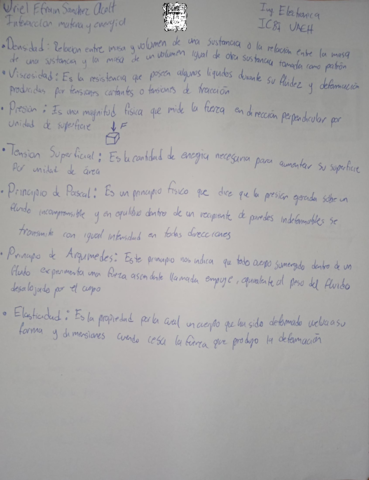 Uriel Efrain Sanchez
Interaccion materia y energia
Ing Electronica
ICSI UAEH
• Densidad: Relacion entre masa y volumen de una sustancia o la relacion entre la masa
de una sustancia y la masa de un volumen igual de otra sustancia tomada como patrón
• Viscosidad: Es la resistencia que poseen algunos liquidos durante su fluidez y deformación
producidas por tensiones cortantes o tensiones de tracción
• Presion: Es una magnitud física que mide la fuerza en dirección perpendicular por
unidad de superficie
F
• Tension Superficial: Es la cantidad de energia necesaria para aumentar su superficie
por unidad de area
• Principio de Pascal: Es un principio fisico que dice que la presion ejercida sobre un
fluido incompresible y en equilibrio dentro de un recipiente de paredes indeformables se
transmite con igual intensidad en todas direcciones
• Principio de Arquimedes: Este principio nos indica que todo cuerpo sumergido dentro de un
fluido experimenta una fuerza ascendente llamada empuje, equivalente al peso del fluido
desalojado por el cuerpo
• Elasticidad: Es la propiedad por la cual un cuerpo que ha sido deformado vuelve a su
forma y dimensiones cuando cesa la fuerza que produjo la deformación